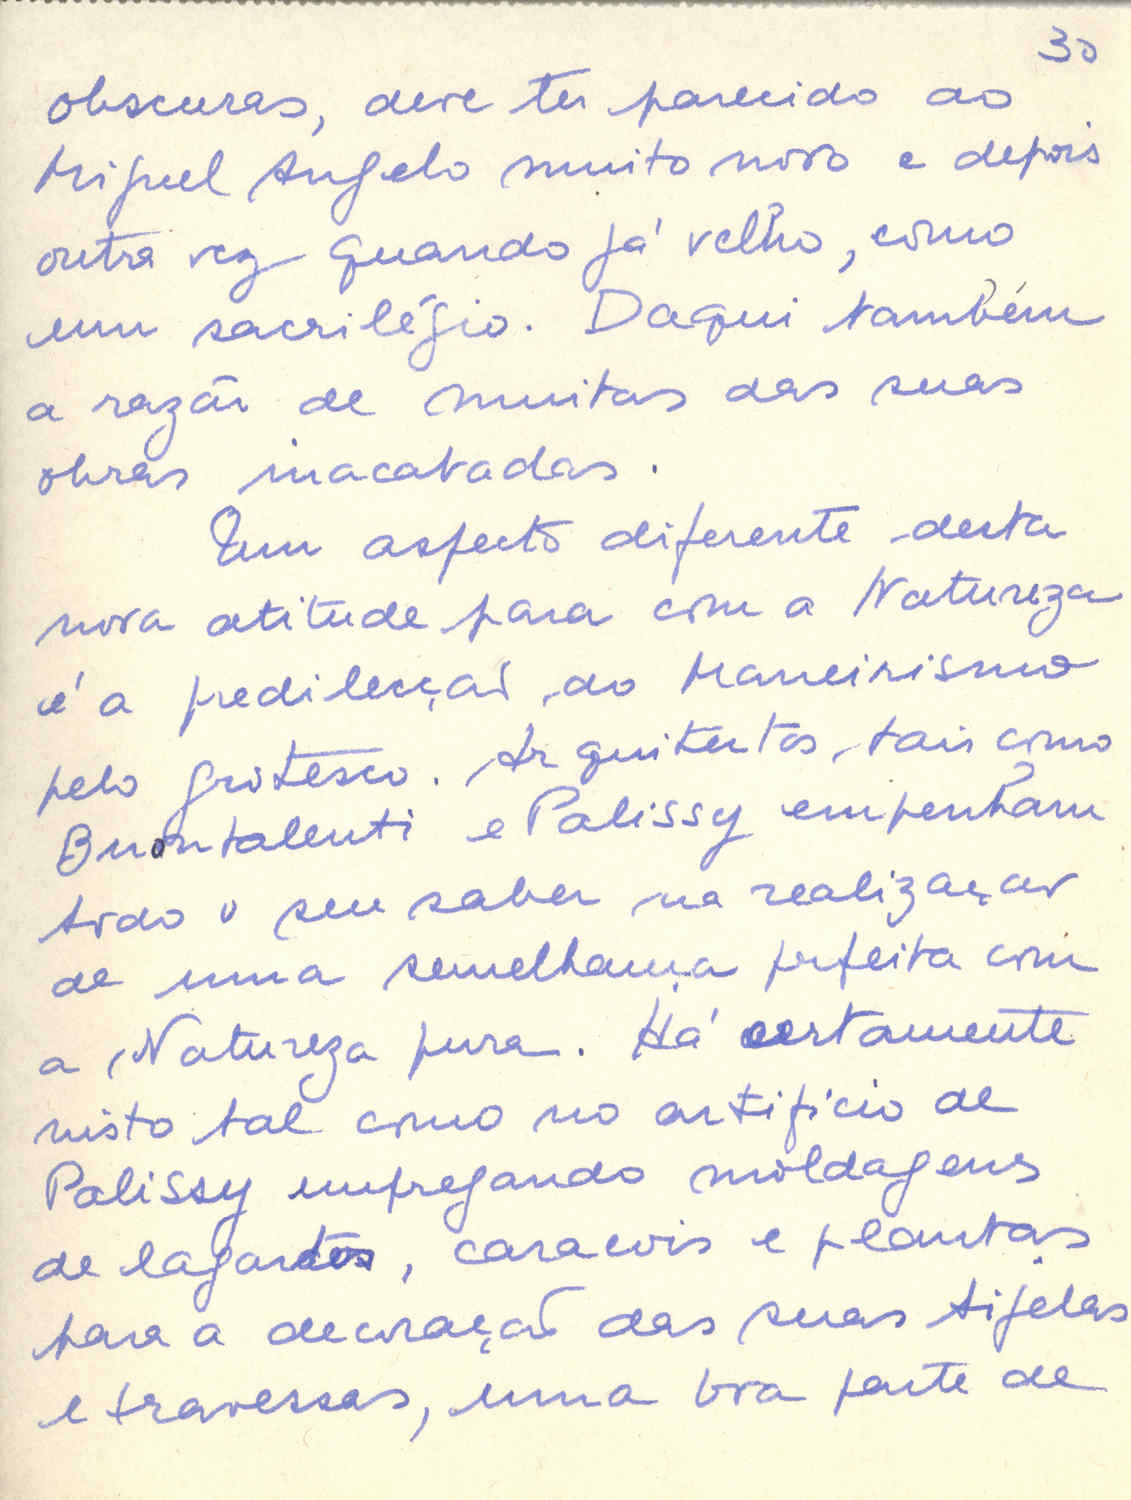 30
obscuras, deve ter parecido ao
Miguel Angelo muito novo e depois
outra vez quando já velho, como
um sacrilégio. Daqui também
a razão de muitas das suas
obras inacabadas.
Um aspecto diferente desta
nova atitude para com a Natureza
é a predilecção do Maneirismo
pelo grotesco. Arquitectos tais como
Buontalenti e Palissy empenham
todo o seu saber na realização
de uma semelhança perfeita com
a Natureza pura. Há certamente
nisto tal como no artifício de
Palissy empregando moldagens
de lagartos, caracois e plantas
para a decoração das suas tijelas
e travessas, uma boa parte de